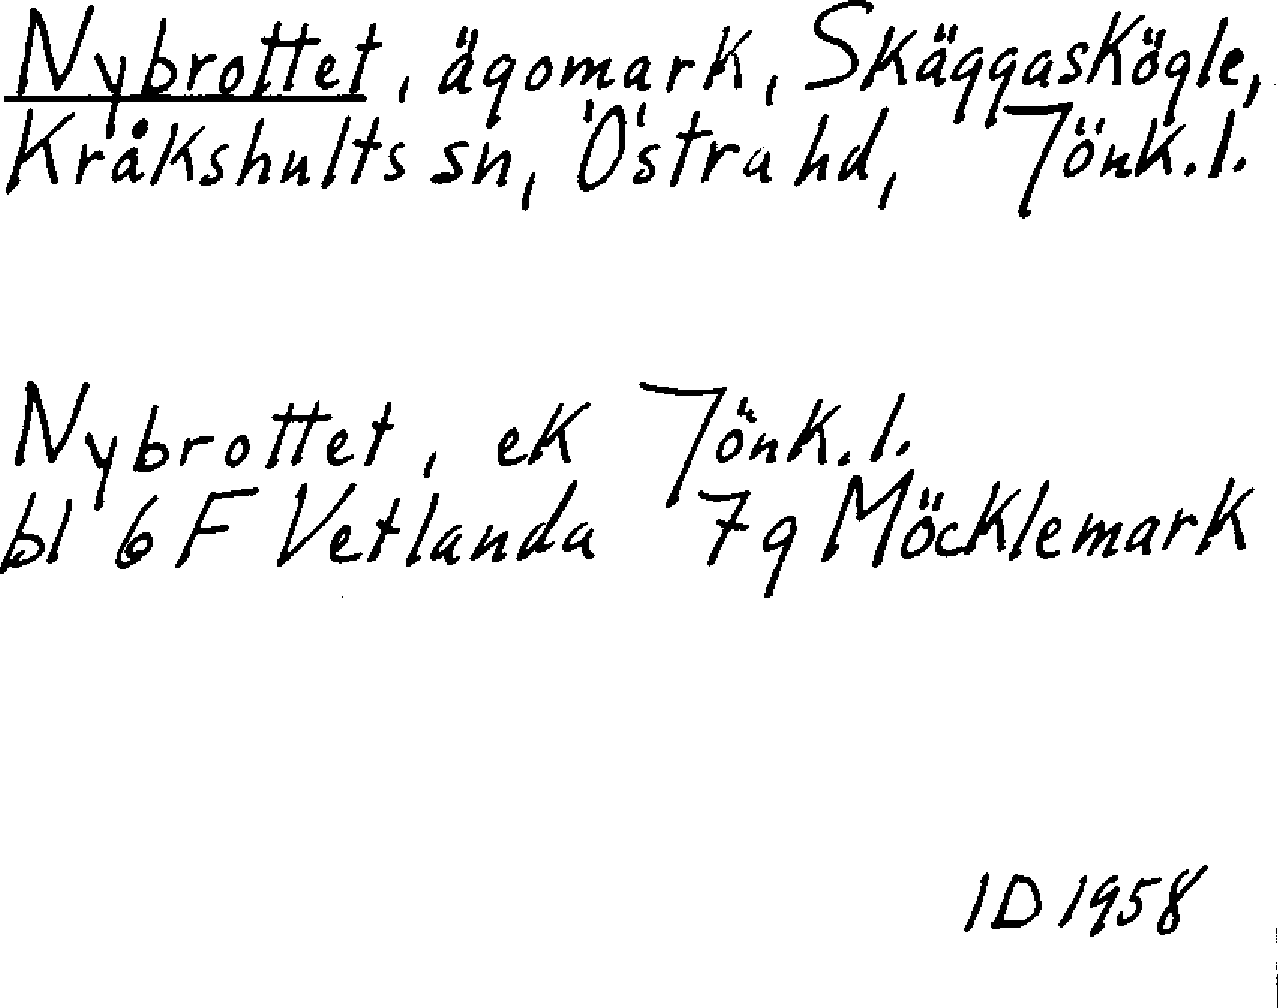 Nybrottet, ägomark, Skäggaskögle,
Kråkshults sn, Östra hd, Jönk.l.
Nybrottet, ek Jönk.l.
bl 6 F Vetlanda 7g Möcklemark
ID 1958